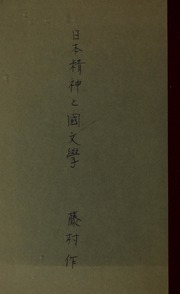 日本精神と國文學
藤村作